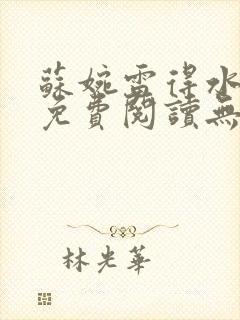 蘇婉雷得水
免費閱讀無
林光華